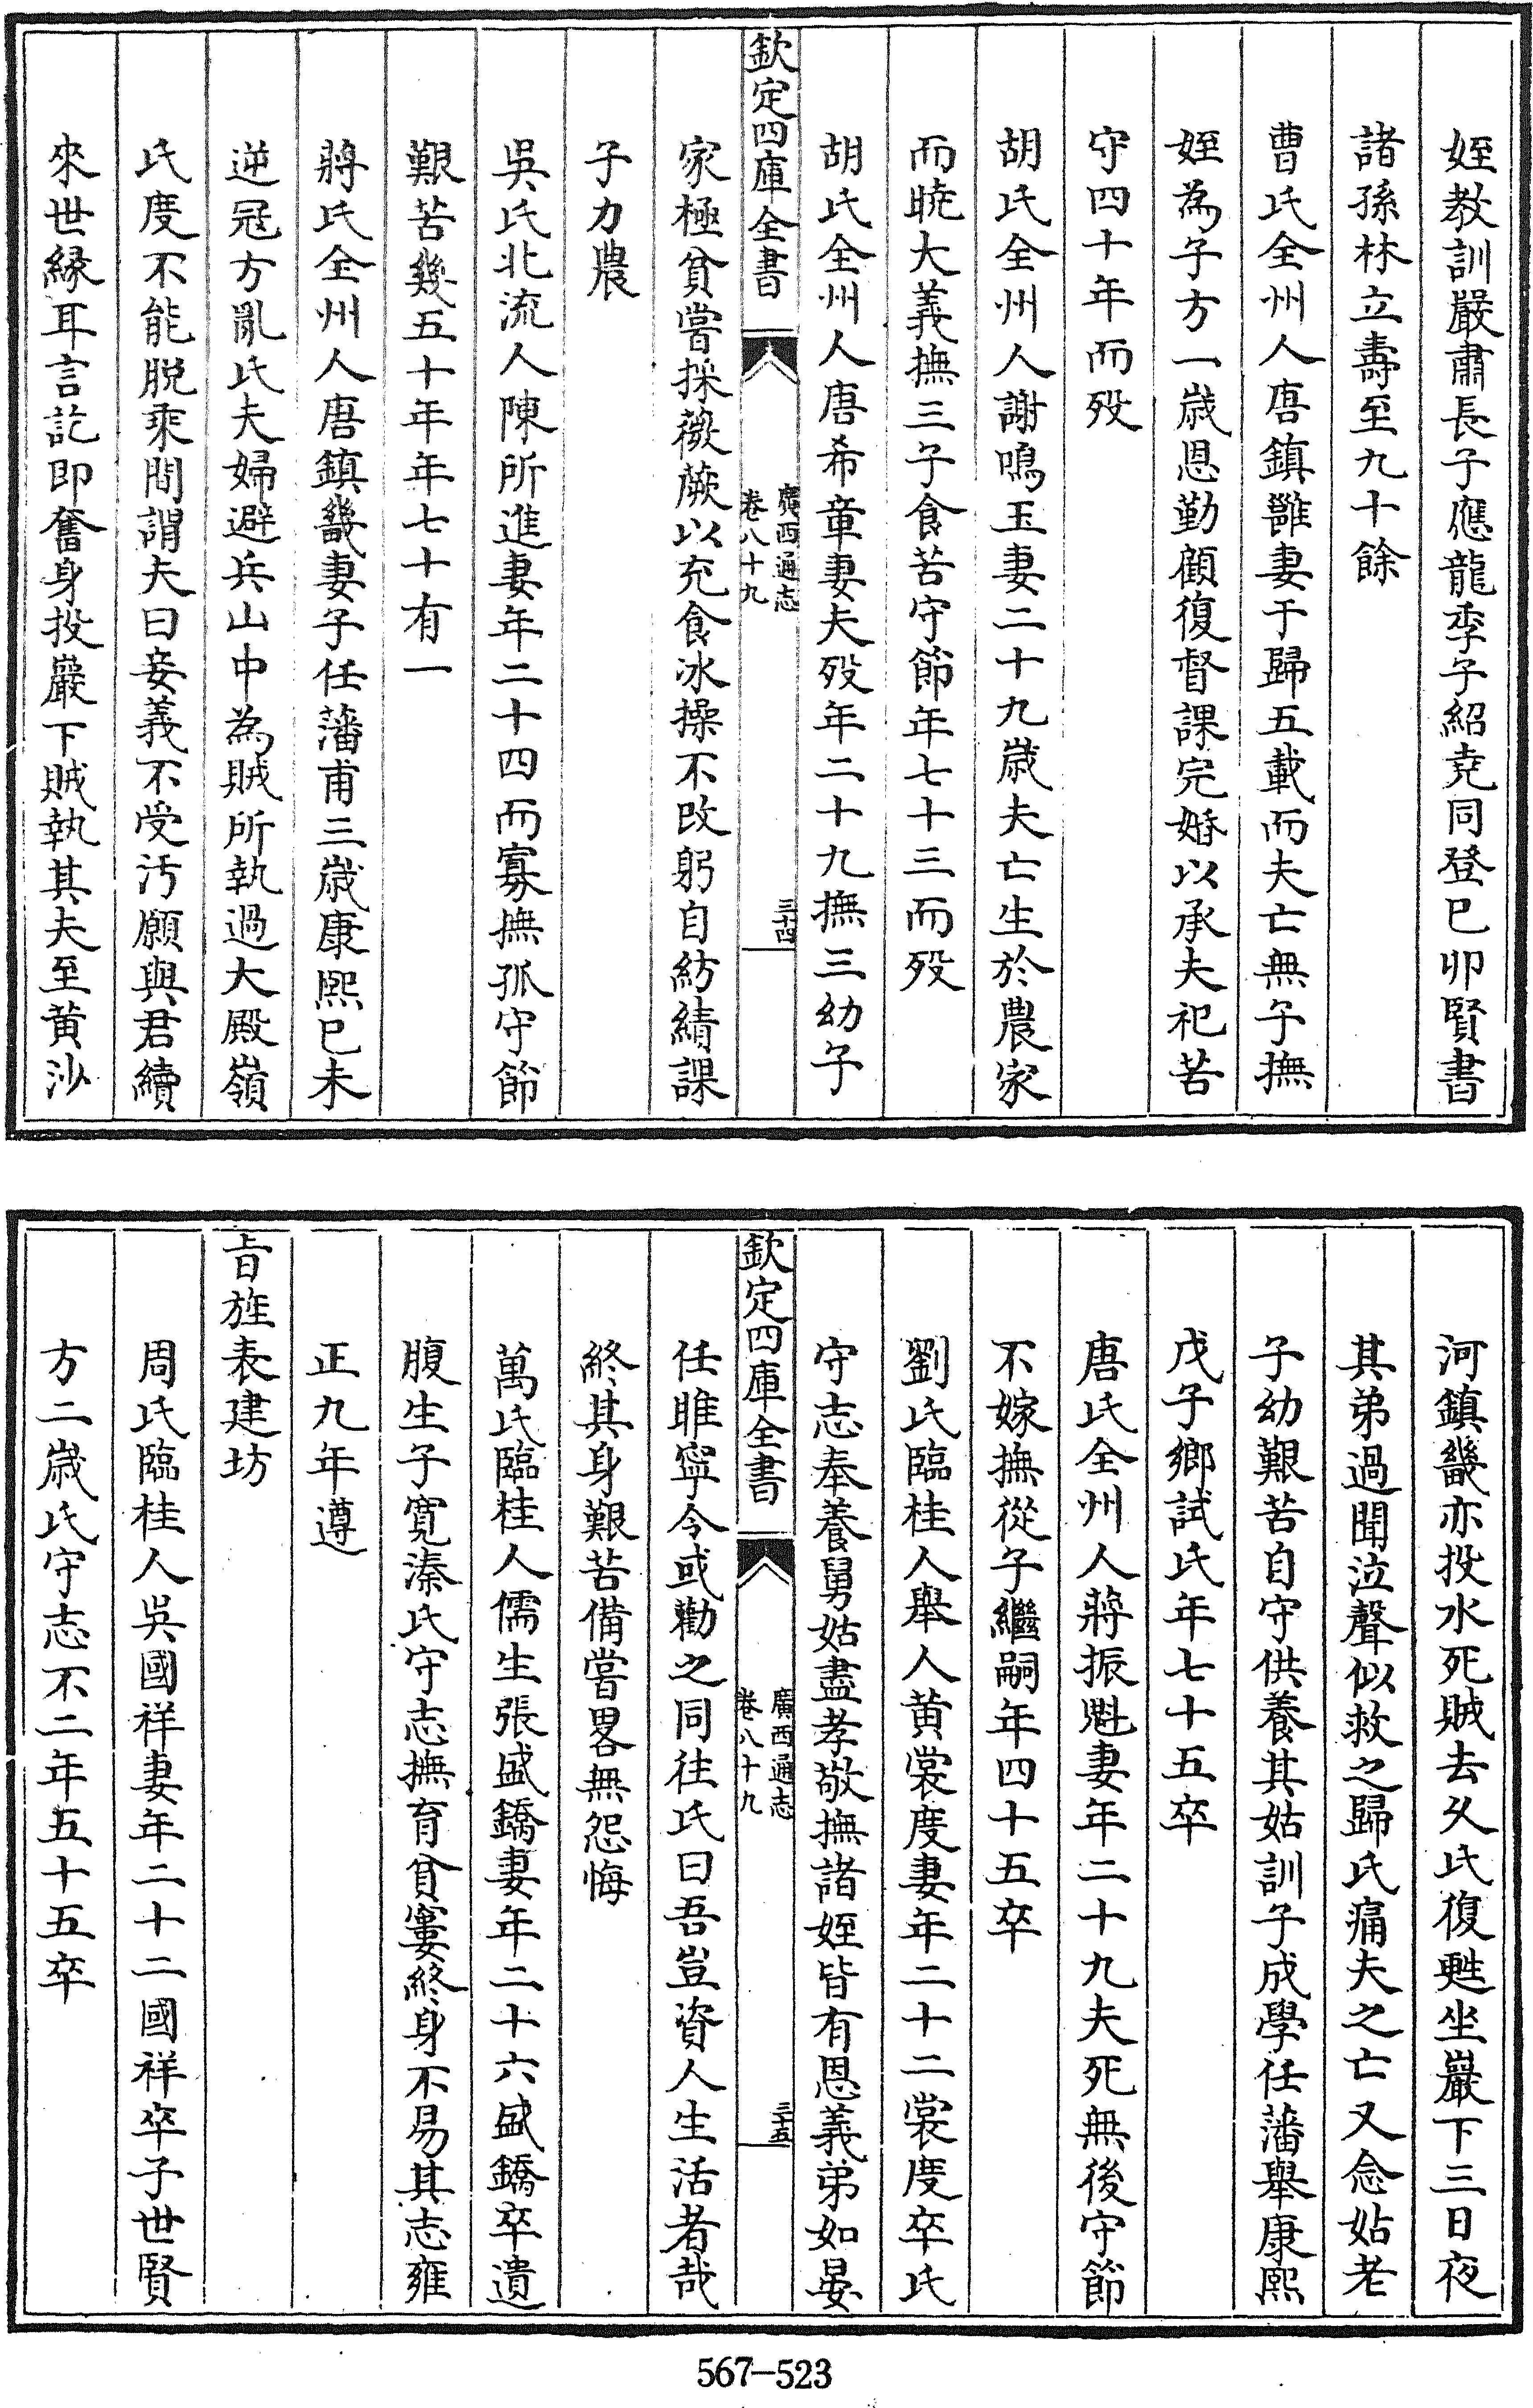 姪教訓嚴肅長子應龍季子紹堯同登己卯賢書
諸孫林立壽至九十餘
曹氏全州人唐鎮雝妻于歸五載而夫亡無子撫
姪為子方一歳恩勤顧復督課完婚以承夫祀苦
守四十年而殁
胡氏全州人謝鳴玉妻二十九歳夫亡生於農家
而曉大義撫三子食苦守節年七十三而殁
胡氏全州人唐希章妻夫殁年二十九撫三幼子
欽定四庫全書
廣西通志
卷八十九
三十四
家極貧嘗採薇蕨以充食冰操不改躬自紡績課
子力農
吳氏北流人陳所進妻年二十四而寡撫孤守節
艱苦幾五十年年七十有一
蔣氏全州人唐鎮畿妻子任藩甫三歳康熙己未
逆冦方亂氏夫婦避兵山中為賊所執過大殿嶺
氏度不能脫乘間謂夫曰妾義不受汚願與君續
來世縁耳言訖即奮身投巖下賊執其夫至黄沙
河鎮畿亦投水死賊去久氏復甦坐巖下三日夜
其弟過聞泣聲似救之歸氏痛夫之亡又念姑老
子幼艱苦自守供養其姑訓子成學任藩舉康熙
戊子鄉試氏年七十五卒
唐氏全州人蔣振魁妻年二十九夫死無後守節
不嫁撫從子繼嗣年四十五卒
劉氏臨桂人舉人黄裳度妻年二十二裳度卒氏
守志奉養舅姑盡孝敬撫諸姪皆有恩義弟如晏
欽定四庫全書
廣西通志
卷八十九
三十五
任睢寜令或勸之同往氏曰吾豈資人生活者哉
終其身艱苦備嘗畧無怨悔
萬氏臨桂人儒生張盛鐈妻年二十六盛鐈卒遺
腹生子寛溱氏守志撫育貧窶終身不易其志雍
正九年遵
旨旌表建坊
周氏臨桂人吳國祥妻年二十二國祥卒子世賢
方二歳氏守志不二年五十五卒
567-523